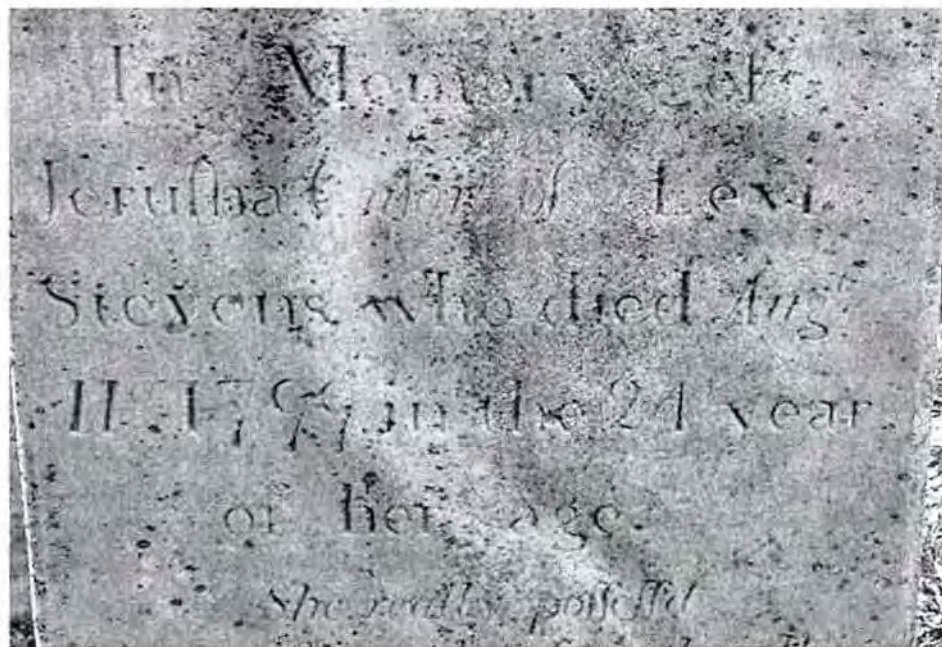 In Memory of
Jeruſha Conſort of Levi
Stevens who died Augᵗ
11. 1799 in the 24 year
of her age.
She really poſſeſſ'd